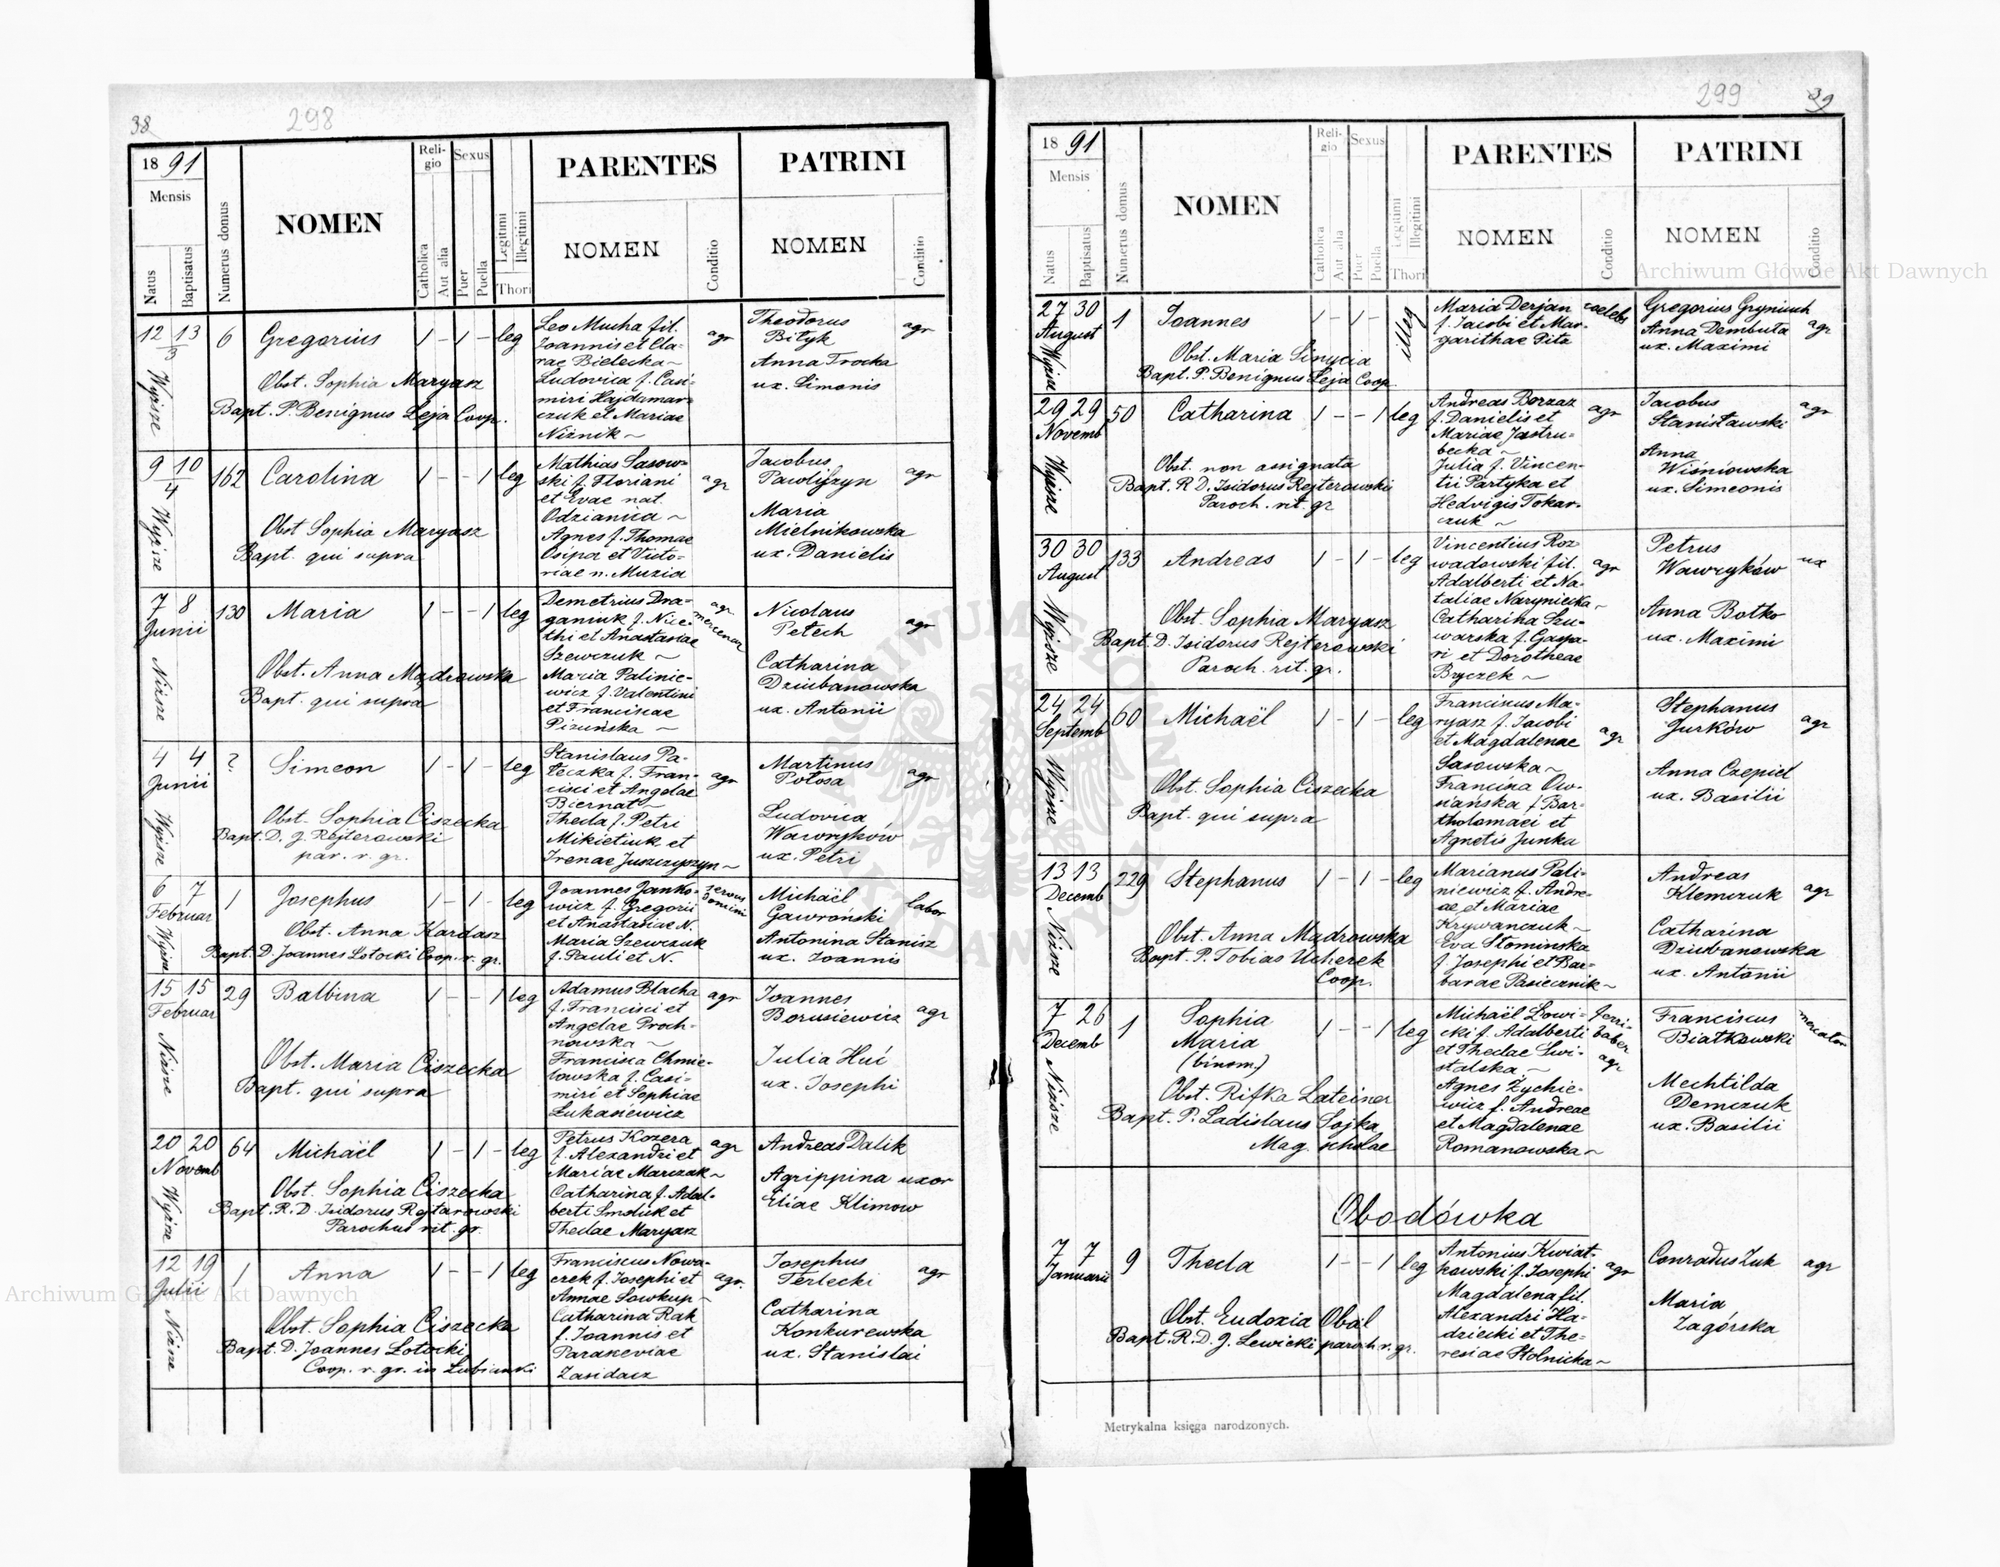 38
298
18 91
Mensis
Natus
Baptisatus
Numerus domus
NOMEN
Religio
Catholica
Aut alia
Sexus
Puer
Puella
Legitimi
Illegitimi
Thori
PARENTES
NOMEN
Conditio
PATRINI
NOMEN
Conditio
12 13
3
Wyższe
6
Gregorius
1 - 1 - leg
Obst. Sophia Maryasz
Bapt. P. Benignus Leja Coop.
Leo Mucha fil.
Joannis et Cla-
rae Bielecka ~
Ludovica f. Casi-
miri Hajdamar-
czuk et Mariae
Niżnik ~
agr
Theodorus
Bityk
Anna Trocka
ux. Simonis
agr
9 10
4
Wyższe
162
Carolina
1 - - 1 leg
Obst Sophia Maryasz
Bapt. qui supra
Mathias Sasow-
ski f. Floriani
et Evae nat.
Odzianica ~
Agnes f. Thomae
Osipa et Victo-
riae n. Muzia
agr
Jacobus
Pawliszyn
Maria
Mielnikowska
ux. Danielis
agr
7 8
Junii
Niższe
130
Maria
1 - - 1 leg
Obst. Anna Mądrowska
Bapt. qui supra
Demetrius Dra-
ganiuk f. Nice-
thi et Anastasiae
Szewczuk ~
Maria Palinie-
wicz f. Valentini
et Franciscae
Pizuńska ~
agr
mercenar
Nicolaus
Petech
Catharina
Dziubanowska
ux. Antonii
agr
4 4
Junii
Wyższe
?
Simeon
1 - 1 - leg
Obst. Sophia Ciszecka
Bapt. D. J. Rejterowski
par. r. gr.
Stanislaus Pa-
teczka f. Fran-
cisci et Angelae
Biernat ~
Thecla f. Petri
Mikietiuk et
Irenae Juszczyszyn ~
agr
Martinus
Potosa
Ludovica
Wawryków
ux. Petri
agr
6 7
Februar
Wyższe
1
Josephus
1 - 1 - leg
Obst. Anna Kardasz
Bapt. D. Joannes Łotocki Coop. r. gr.
Joannes Janko-
wicz f. Gregorii
et Anastasiae N.
Maria Szewczuk
f. Pauli et N.
servus
domini
Michaël
Gawroński
Antonina Stanisz
ux. Joannis
labor
15 15
Februar
Niższe
29
Balbina
1 - - 1 leg
Obst. Maria Ciszecka
Bapt. qui supra
Adamus Blacha
f. Francisci et
Angelae Proch-
nowska ~
Francisca Chmie-
lowska f. Casi-
miri et Sophiae
Łukaniewicz
agr
Joannes
Borusiewicz
Julia Huć
ux. Josephi
agr
20 20
Novemb
Wyższe
64
Michaël
1 - 1 - leg
Obst. Sophia Ciszecka
Bapt. R. D. Isidorus Rejtarowski
Parochus rit. gr.
Petrus Kozera
f. Alexandri et
Mariae Marczak ~
Catharina f. Adal-
berti Smoluk et
Theclae Maryasz
agr
Andreas Dalik
Agrippina uxor
Eliae Klimow
12 19
Julii
Niższe
1
Anna
1 - - 1 leg
Obst. Sophia Ciszecka
Bapt. D. Joannes Łotocki
Coop. r. gr. in Łubianki
Franciscus Nowa-
czek f. Josephi et
Annae Sowkup ~
Catharina Rak
f. Joannis et
Parasceviae
Zasidacz
agr
Josephus
Terlecki
Catharina
Konkurewska
ux. Stanislai
agr
299
39
18 91
Mensis
Natus
Baptisatus
Numerus domus
NOMEN
Religio
Catholica
Aut alia
Sexus
Puer
Puella
Legitimi
Illegitimi
Thori
PARENTES
NOMEN
Conditio
PATRINI
NOMEN
Conditio
27 30
August
Wyższe
1
Joannes
1 - 1 - illeg
Obst. Maria Sinycia
Bapt. P. Benignus Leja Coop
Maria Derjan
f. Jacobi et Mar-
garithae Pita
caelebs
Gregorius Gryniuch
Anna Dembuta
ux. Maximi
agr
29 29
Novemb
Wyższe
50
Catharina
1 - - 1 leg
Obst. non assignata
Bapt. R. D. Isidorus Rejterowski
Paroch. rit. gr
Andreas Borzaz
f. Danielis et
Mariae Jastru-
becka ~
Julia f. Vincen-
tii Partyka et
Hedvigis Tokar-
czuk ~
agr
Jacobus
Stanisławski
Anna
Wiśniowska
ux. Simeonis
agr
30 30
August
Wyższe
133
Andreas
1 - 1 - leg
Obst. Sophia Maryasz
Bapt. D. Isidorus Rejterowski
Paroch. rit. gr.
Vincentius Roz-
wadowski fil.
Adalberti et Na-
taliae Naryniecka ~
Catharina Szu-
warska f. Gaspa-
ri et Dorotheae
Bryczek ~
agr
Petrus
Wawryków
Anna Botko
ux. Maximi
ux
24 24
Septemb
Wyższe
60
Michaël
1 - 1 - leg
Obst. Sophia Ciszecka
Bapt. qui supra
Franciscus Ma-
ryasz f. Jacobi
et Magdalenae
Sasowska ~
Francina Ow-
siańska f. Bar-
tholomaei et
Agnetis Junka
agr
Stephanus
Jurków
Anna Czepiel
ux. Basilii
agr
13 13
Decemb
Niższe
229
Stephanus
1 - 1 - leg
Obst. Anna Mądrowska
Bapt. P. Tobias Ucherek
Coop.
Marianus Pali-
niewicz f. Andre-
ae et Mariae
Krywanczuk ~
Eva Stominska
f. Josephi et Bar-
barae Pasiecznik ~
Andreas
Klemczuk
Catharina
Dziubanowska
ux. Antonii
agr
7 26
Decemb
Niższe
1
Sophia
Maria
(binom.)
1 - - 1 leg
Obst. Rifka Lateiner
Bapt. P. Ladislaus Sojka
Mag. scholae
Michaël Łowi-
cki f. Adalberti
et Theclae Swi-
stalska ~
Agnes Zychie-
wicz f. Andreae
et Magdalenae
Romanowska ~
ferri-
faber
agr
Franciscus
Białkowski
Mechtilda
Demczuk
ux. Basilii
mercator
Obodówka
7 7
Januarii
9
Thecla
1 - - 1 leg
Obst. Eudoxia Obal
Bapt. R. D. J. Lewicki paroch r. gr.
Antonius Kwiat-
kowski f. Josephi
Magdalena fil.
Alexandri Ha-
dziecki et The-
resiae Stolnicka ~
agr
Conradus Zuk
Maria
Zagórska
agr
Metrykalna księga narodzonych.
Archiwum Główne Akt Dawnych
Archiwum Główne Akt Dawnych
ARCHIWUM GŁÓWNE
AKT DAWNYCH